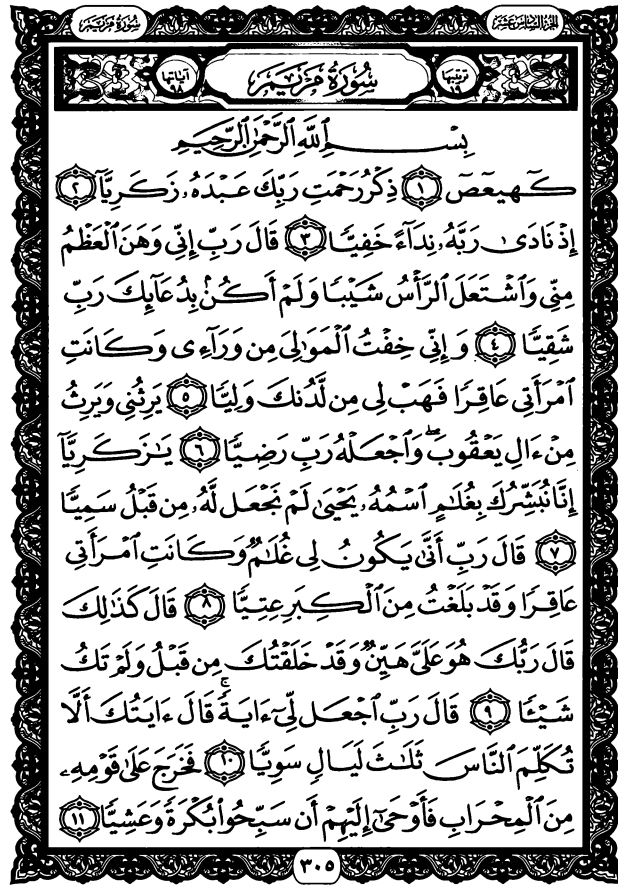 الجُزْءُ السَّادِسَ عَشَرَ سُورَةُ مَرْيَمَ
ترتيبها ١٩ سُورَةُ مَرْيَمَ آياتها ٩٨
بِسْمِ ٱللَّهِ ٱلرَّحْمَٰنِ ٱلرَّحِيمِ
كٓهيعٓصٓ ١ ذِكْرُ رَحْمَتِ رَبِّكَ عَبْدَهُۥ زَكَرِيَّآ ٢
إِذْ نَادَىٰ رَبَّهُۥ نِدَآءً خَفِيًّا ٣ قَالَ رَبِّ إِنِّي وَهَنَ ٱلْعَظْمُ
مِنِّي وَٱشْتَعَلَ ٱلرَّأْسُ شَيْبًا وَلَمْ أَكُنۢ بِدُعَآئِكَ رَبِّ
شَقِيًّا ٤ وَإِنِّي خِفْتُ ٱلْمَوَٰلِيَ مِن وَرَآءِي وَكَانَتِ
ٱمْرَأَتِي عَاقِرًا فَهَبْ لِي مِن لَّدُنكَ وَلِيًّا ٥ يَرِثُنِي وَيَرِثُ
مِنْ ءَالِ يَعْقُوبَۖ وَٱجْعَلْهُ رَبِّ رَضِيًّا ٦ يَٰزَكَرِيَّآ
إِنَّا نُبَشِّرُكَ بِغُلَٰمٍ ٱسْمُهُۥ يَحْيَىٰ لَمْ نَجْعَل لَّهُۥ مِن قَبْلُ سَمِيًّا
٧ قَالَ رَبِّ أَنَّىٰ يَكُونُ لِي غُلَٰمٌ وَكَانَتِ ٱمْرَأَتِي
عَاقِرًا وَقَدْ بَلَغْتُ مِنَ ٱلْكِبَرِ عِتِيًّا ٨ قَالَ كَذَٰلِكَ
قَالَ رَبُّكَ هُوَ عَلَيَّ هَيِّنٌ وَقَدْ خَلَقْتُكَ مِن قَبْلُ وَلَمْ تَكُ
شَيْـًٔا ٩ قَالَ رَبِّ ٱجْعَل لِّيٓ ءَايَةًۚ قَالَ ءَايَتُكَ أَلَّا
تُكَلِّمَ ٱلنَّاسَ ثَلَٰثَ لَيَالٍ سَوِيًّا ١٠ فَخَرَجَ عَلَىٰ قَوْمِهِۦ
مِنَ ٱلْمِحْرَابِ فَأَوْحَىٰٓ إِلَيْهِمْ أَن سَبِّحُوا۟ بُكْرَةً وَعَشِيًّا ١١
٣٠٥